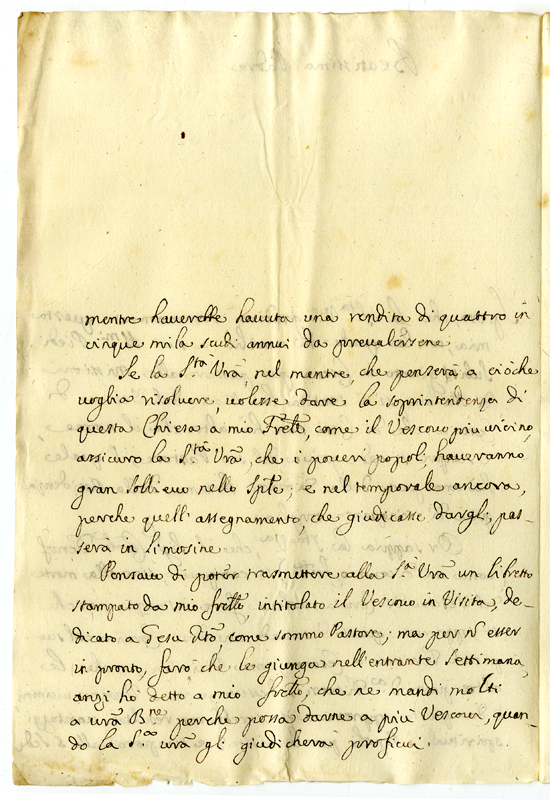 mentre hauerebbe hauuta una rendita di quattro in
cinque mila scudi annui da preualersene
Se la S.tà Vrã, nel mentre, che penserà a ciò che
uoglia risoluere, uolesse dare la soprintendenza di
questa Chiesa a mio Frello, come il Vescouo piu uicino,
assicuro la S.tà Vrã, che i poueri popoli haueranno
gran sollieuo nello Spile; e nel temporale ancora,
perche quell'assegnamento, che giudicasse dargli, pas-
serà in limosine
Pensauo di poter trasmettere alla S.tà Vrã un libretto
stampato da mio frello, intitolato il Vescouo in Visita, de-
dicato a Gesu Xto come sommo Pastore; ma per nõ esser
in pronto, farò che le giunga nell'entrante settimana,
anzi hò detto a mio frello, che ne mandi molti
a urã B.ne perche possa darne a più Vescoui, quan-
do la S.tà urã gli giudicherà proficui.